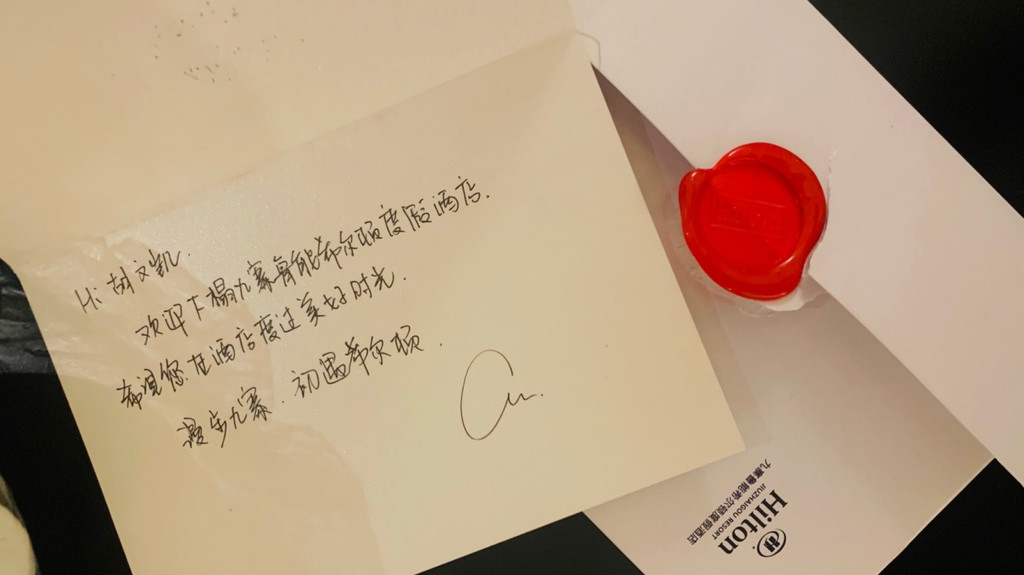 Hi 胡文凯.
欢迎下榻九寨鲁能希尔顿度假酒店.
希望您在酒店度过美好时光.
漫步九寨.初遇希尔顿.
Hilton
JIUZHAIGOU RESORT
九寨鲁能希尔顿度假酒店